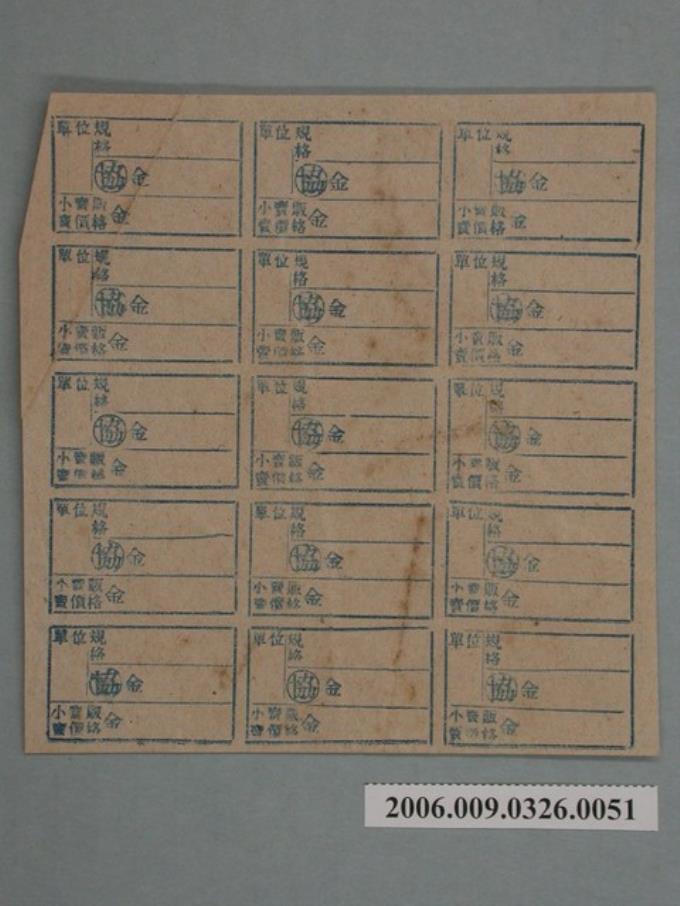 單位規格
協金
小賣販賣價格 金
單位規格
協金
小賣販賣價格 金
單位規格
協金
小賣販賣價格 金
單位規格
協金
小賣販賣價格 金
單位規格
協金
小賣販賣價格 金
單位規格
協金
小賣販賣價格 金
單位規格
協金
小賣販賣價格 金
單位規格
協金
小賣販賣價格 金
單位規格
協金
小賣販賣價格 金
單位規格
協金
小賣販賣價格 金
單位規格
協金
小賣販賣價格 金
單位規格
協金
小賣販賣價格 金
單位規格
協金
小賣販賣價格 金
單位規格
協金
小賣販賣價格 金
單位規格
協金
小賣販賣價格 金
2006.009.0326.0051